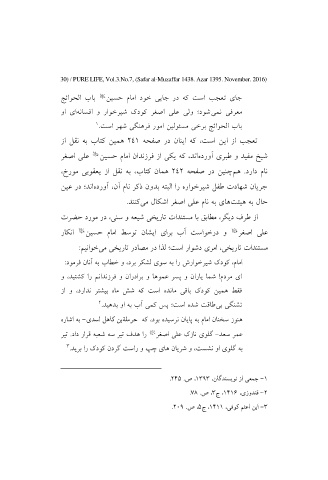 30) / PURE LIFE, Vol.3.No.7, (Safar al-Muzaffar 1438. Azar 1395. November. 2016)
جای تعجب است که در جایی خود امام حسین؏ باب الحوائج
معرفی نمی‌شود؛ ولی علی اصغر کودک شیرخوار و افسانه‌ای او
باب الحوائج برخی مسئولین امور فرهنگی شهر است.۱
تعجب از این است، که اینان در صفحه ۲۴۱ همین کتاب به نقل از
شیخ مفید و طبری آورده‌اند، که یکی از فرزندان امام حسین؏ علی اصغر
نام دارد. هم‌چنین در صفحه ۲۴۲ همان کتاب، به نقل از یعقوبی مورخ،
جریان شهادت طفل شیرخواره را البته بدون ذکر نام آن، آورده‌اند؛ در عین
حال به هیئت‌های به نام علی اصغر اشکال می‌کنند.
از طرف دیگر، مطابق با مستندات تاریخی شیعه و سنی، در مورد حضرت
علی اصغر؏ و درخواست آب برای ایشان توسط امام حسین؏ انکار
مستندات تاریخی، امری دشوار است؛ لذا در مصادر تاریخی می‌خوانیم:
امام، کودک شیرخوارش را به سوی لشکر برد، و خطاب به آنان فرمود:
ای مردم! شما یاران و پسر عموها و برادران و فرزندانم را کشتید، و
فقط همین کودک باقی مانده است که شش ماه بیشتر ندارد، و از
تشنگی بی‌طاقت شده است؛ پس کمی آب به او بدهید.۲
هنوز سخنان امام به پایان نرسیده بود، که حرملة‌بن کاهل اسدی- به اشاره
عمر سعد- گلوی نازک علی اصغر؏ را هدف تیر سه شعبه قرار داد. تیر
به گلوی او نشست، و شریان های چپ و راست گردن کودک را برید.۳
۱- جمعی از نویسندگان، ۱۳۹۳، ص. ۲۴۵.
۲- قندوزی، ۱۴۱۶، ج۳، ص. ۷۸.
۳- ابن اعثم کوفی، ۱۴۱۱، ج۵، ص. ۲۰۹.